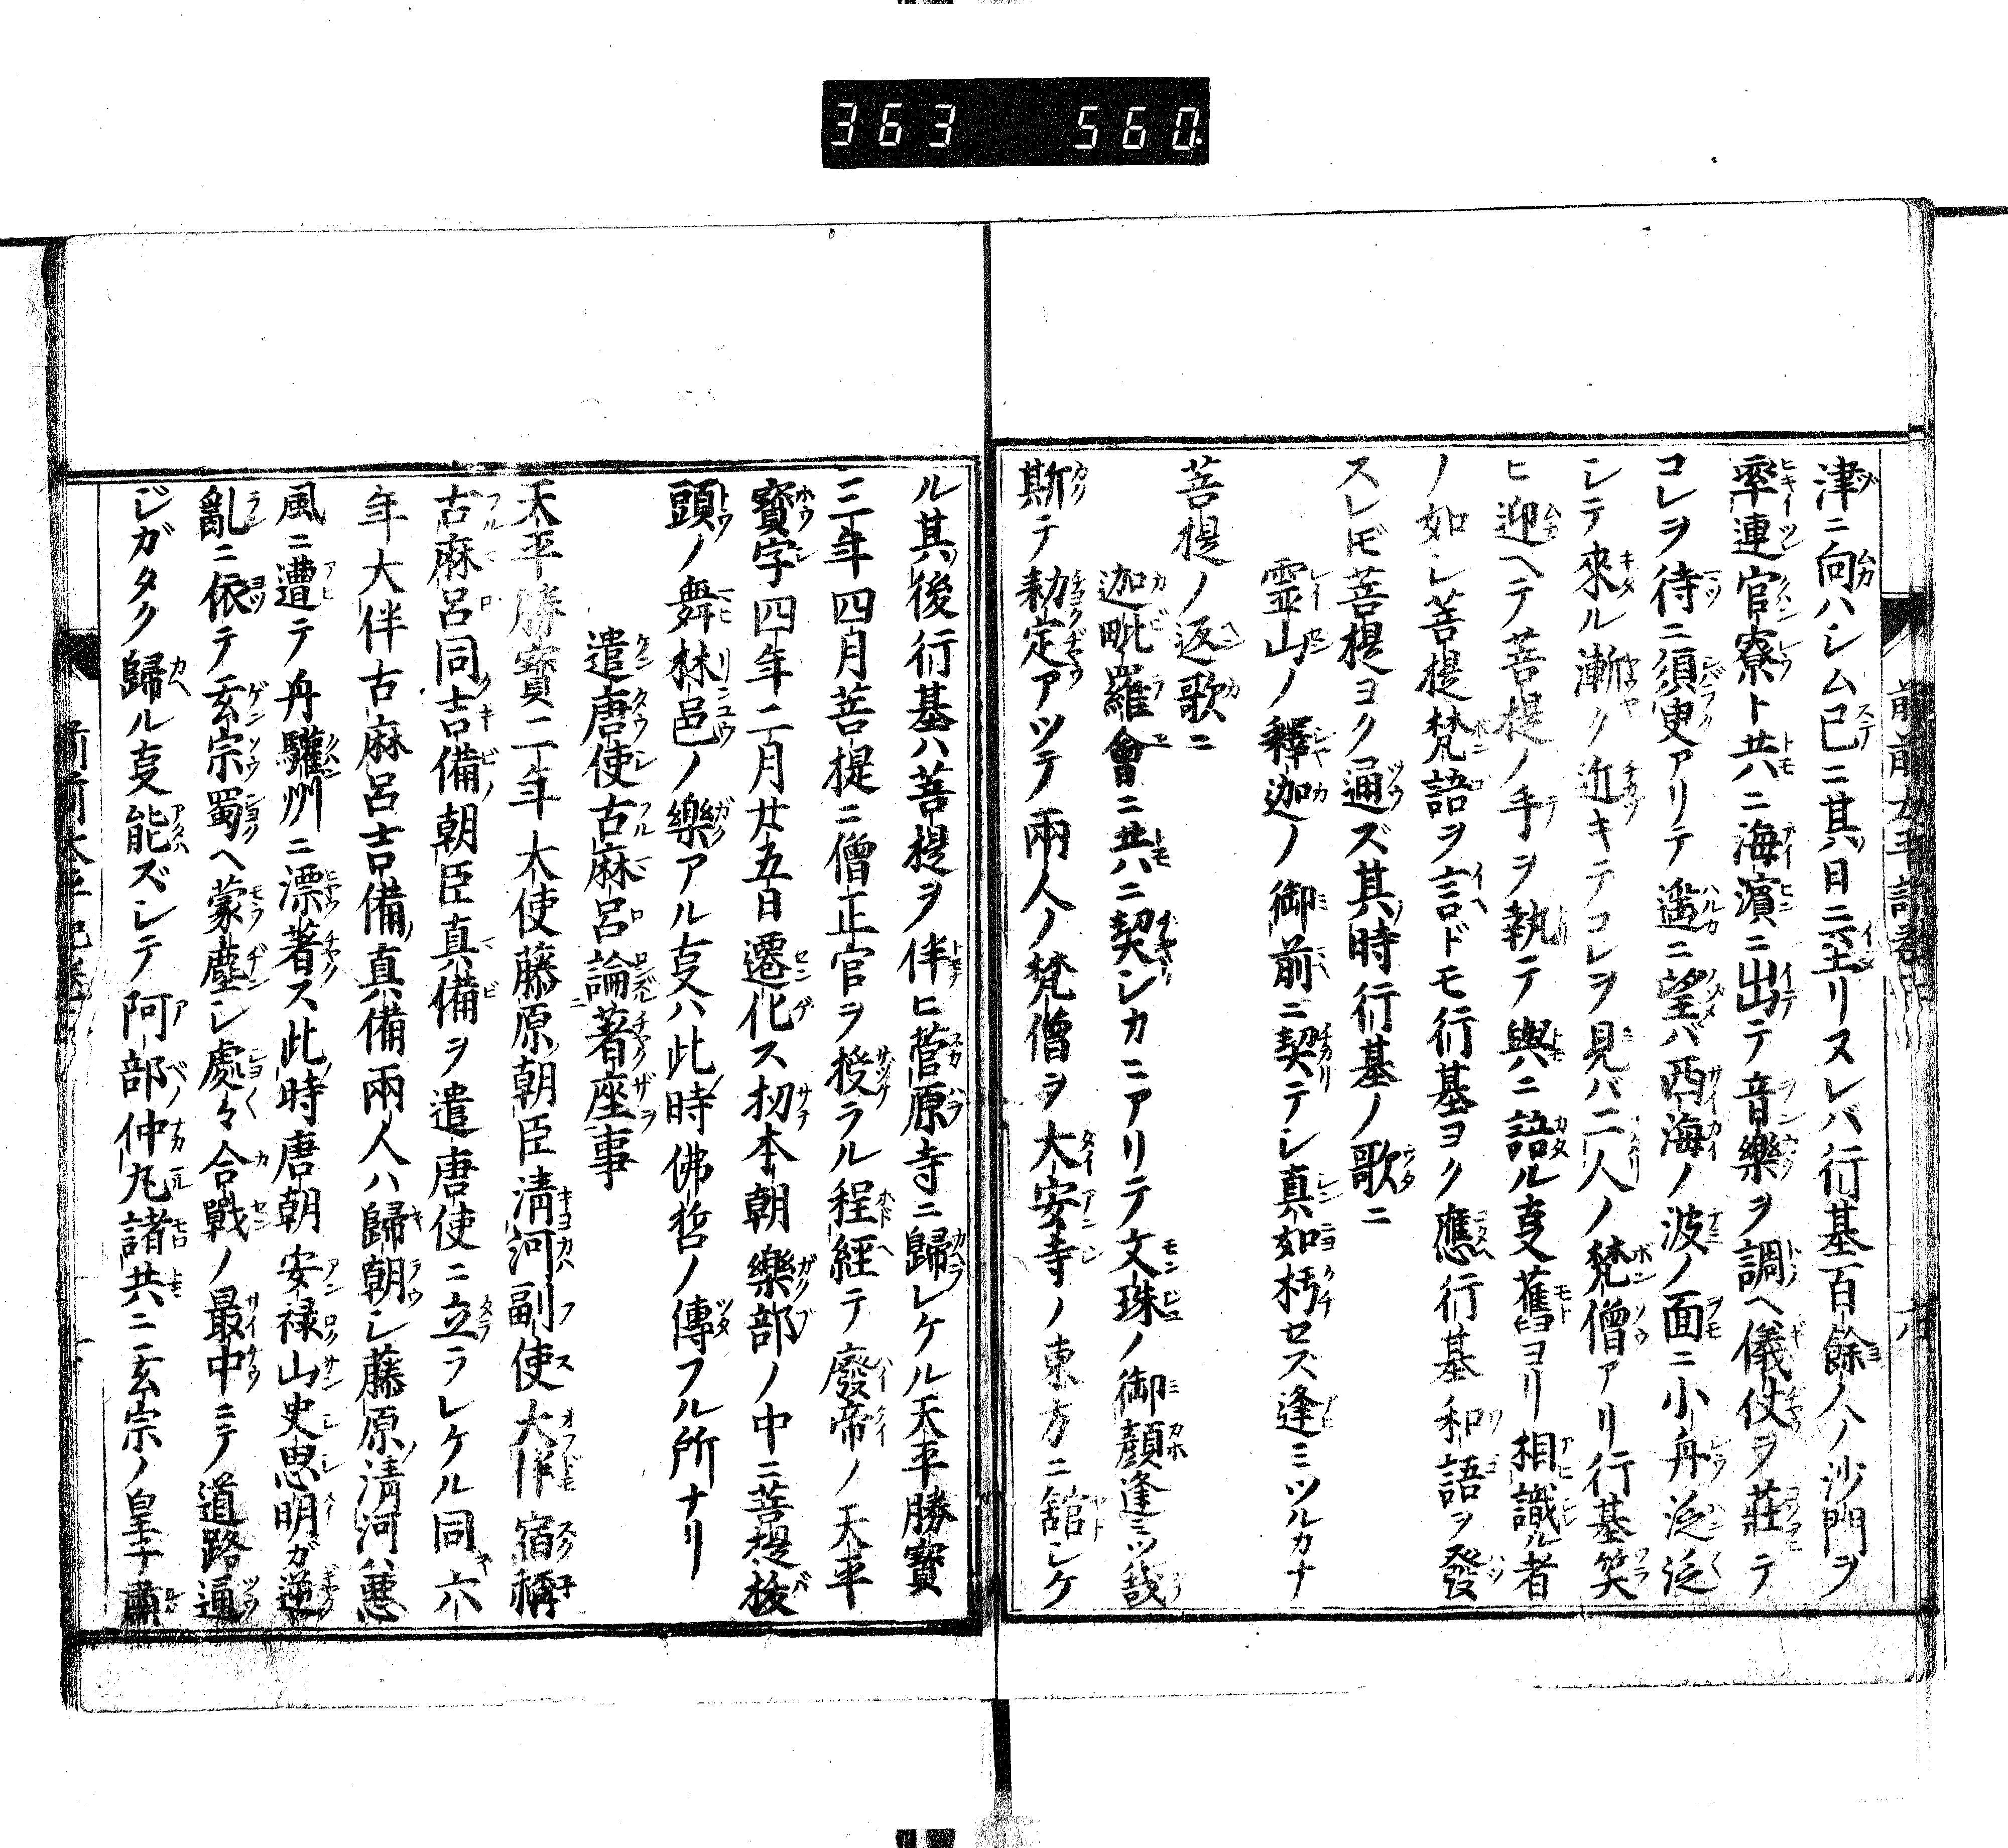 363 560
津ニ向ハシム已ニ其日ニ至リヌレバ行基百餘人ノ沙門ヲ
率連官寮ト共ニ海濱ニ出テ音樂ヲ調ヘ儀仗ヲ莊テ
コレヲ待ニ須臾アリテ遥ニ望バ西海ノ波ノ面ニ小舟泛泛
シテ來ル漸ク近キテコレヲ見バ二人ノ梵僧アリ行基笑
ヒ迎ヘテ菩提ノ手ヲ執テ與ニ語ル叓舊ヨリ相識ル者
ノ如シ菩提梵語ヲ言ドモ行基ヨク應行基和語ヲ發
スレ𪜈菩提ヨク通ズ其時行基ノ歌ニ
靈山ノ釋迦ノ御前ニ契テシ真如朽セズ逢ミツルカナ
菩提ノ返歌ニ
迦毗羅會ニ共ニ契シカニアリテ文珠ノ御顔逢ミツ哉
斯テ勅定アツテ兩人ノ梵僧ヲ大安寺ノ東方ニ舘シケ
ル其後行基ハ菩提ヲ伴ヒ菅原寺ニ歸レケル天平勝寳
三年四月菩提ニ僧正官ヲ授ラル程經テ廢帝ノ天平
寳字四年二月廿五日遷化ス扨本朝樂部ノ中ニ菩提㧞
頭ノ舞林邑ノ樂アル叓ハ此時佛哲ノ傳フル所ナリ
遣唐使古麻呂論著座事
天平勝寳二年大使藤原朝臣淸河副使大伴宿祢
古麻呂同吉備朝臣真備ヲ遣唐使ニ立ラレケル同六
年大伴古麻呂吉備真備兩人ハ歸朝シ藤原淸河ハ悪
風ニ遭テ舟驩州ニ漂著ス此時唐朝安禄山史思明ガ逆
亂ニ依テ玄宗蜀ヘ蒙塵シ處々合戰ノ最中ニテ道路通
ジガタク歸ル叓能ズシテ阿部仲丸諸共ニ玄宗ノ皇子肅